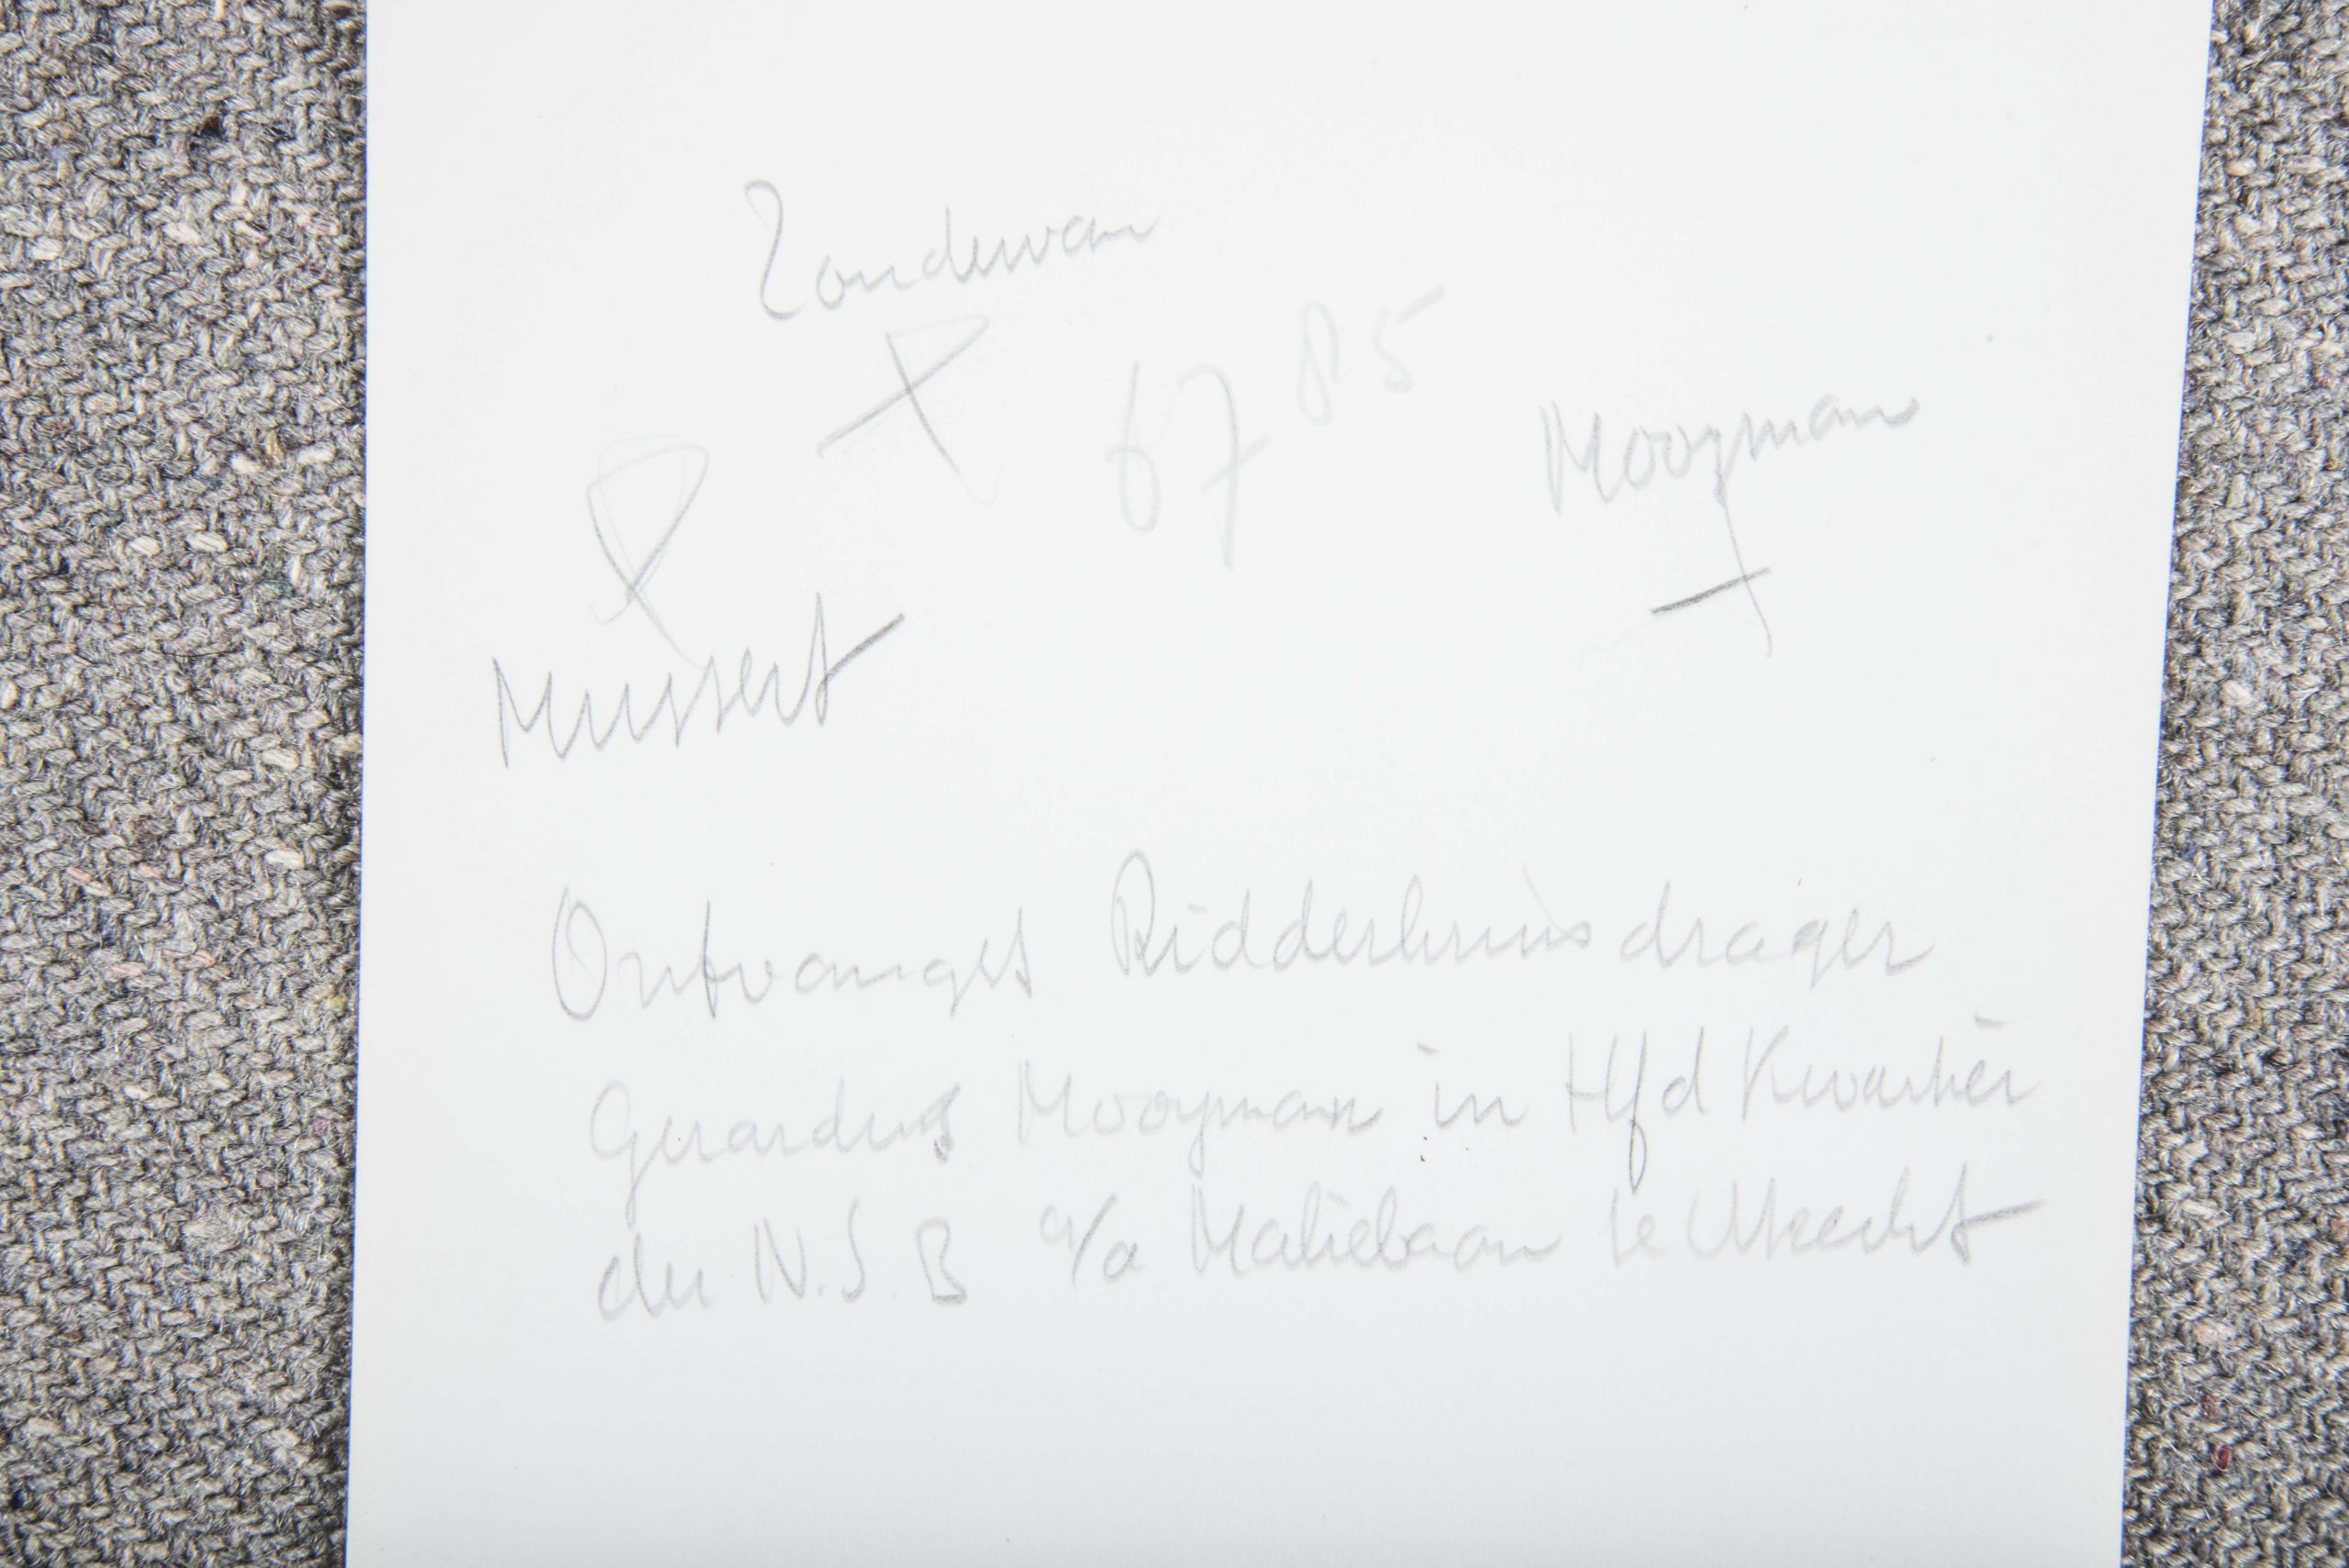 Zondervan
67 85
Mooyman
Mussert
Ontvangst Ridderkruisdrager
Gerardus Mooyman in Hfd Kwartier
der N.S.B a/a Maliebaan te Utrecht